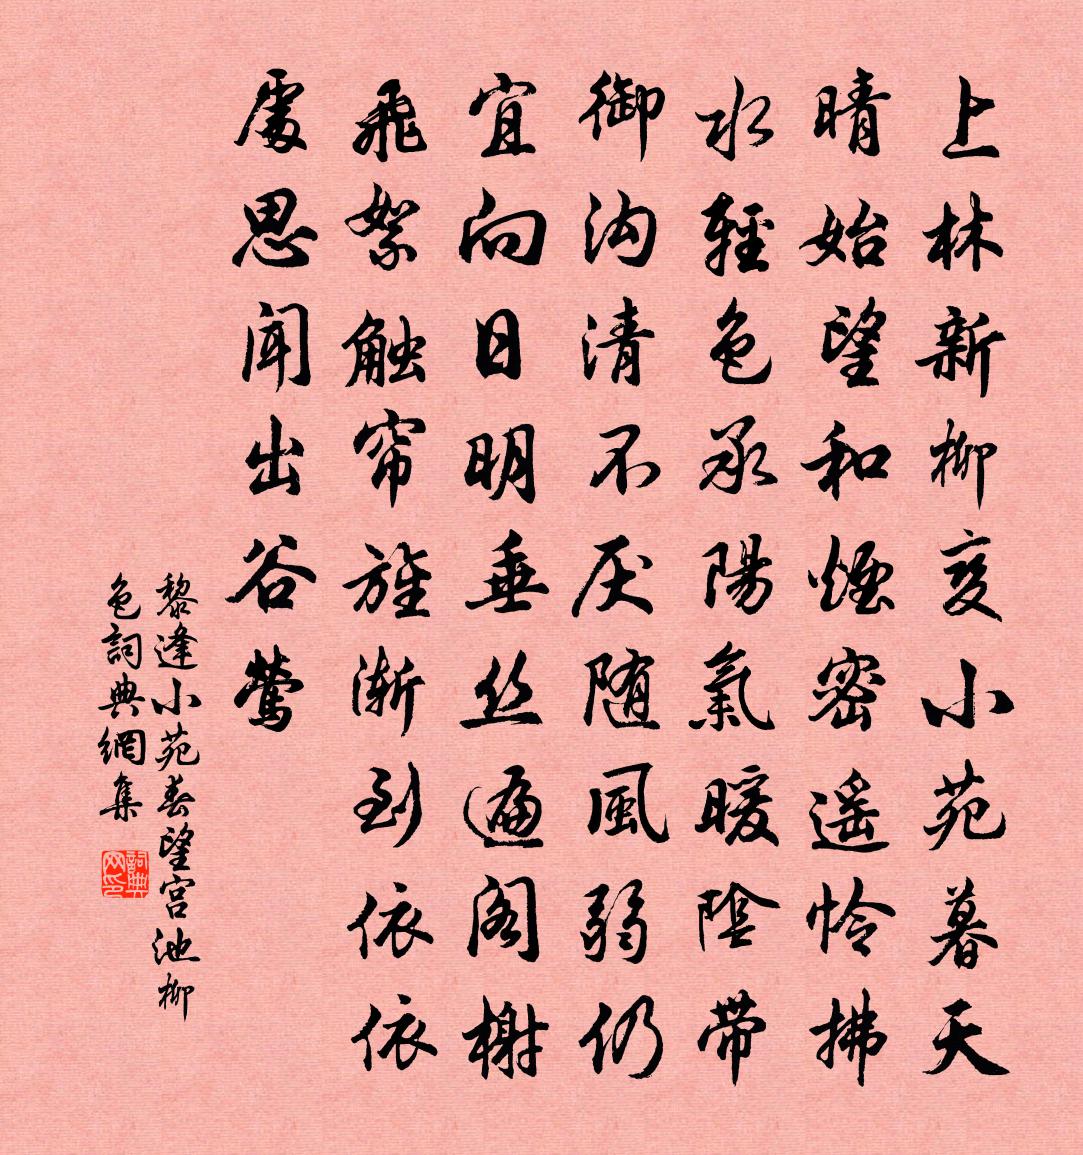 上林新柳变小苑暮天
晴始望和煙密遥怜拂
水輕色承陽氣暖陰带
御沟清不厌随風弱仍
宜向日明垂丝遍阁榭
飛絮触帘旌渐到依依
處思闻出谷莺
黎逢小苑春望宫池柳
色詞典網集
詞典
网印